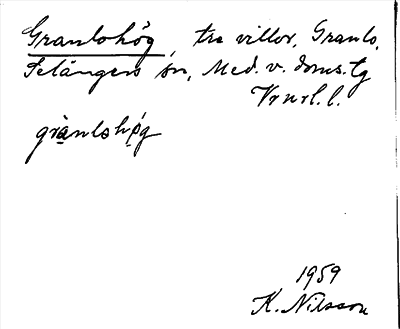 Granlohög, tre villor, Granlo,
Selångers sn, Med. v. doms.tg
Vrnrl. l.
grànlohǫ́g
1959
K. Nilsson